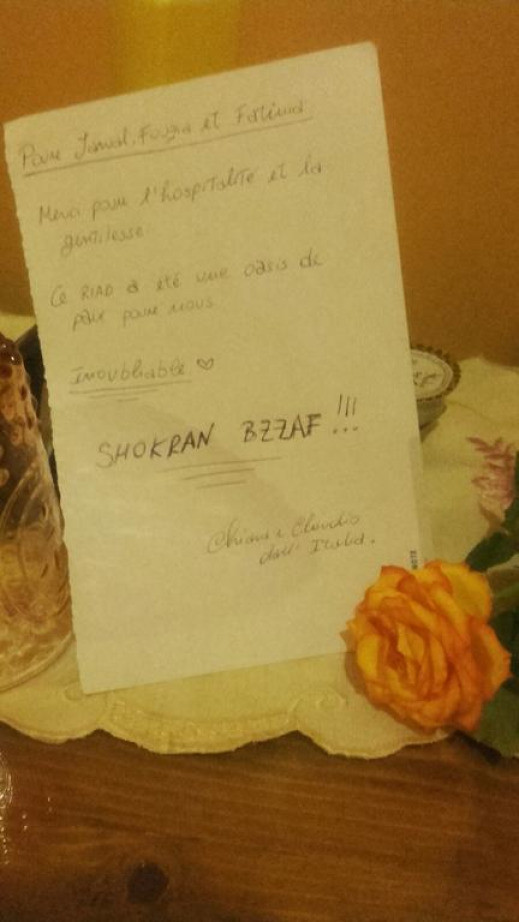 Pour Jamal, Fouzia et Fatima
Merci pour l'hospitalité et la
gentilesse.
Ce RIAD a été une oasis de
paix pour nous
Inoubliable ♡
SHOKRAN BZZAF !!!
Chiara e Claudio
dall' Italia.